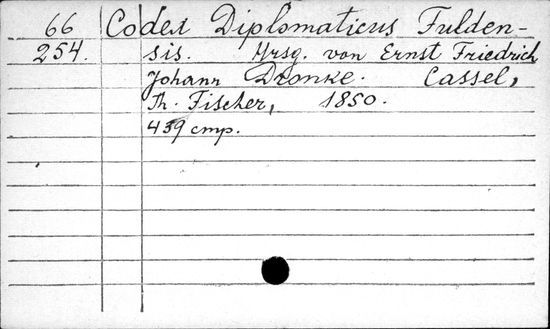 66 Codex Diplomaticus Fulden-
254. sis. Hrsg. von Ernst Friedrich
Johann Dronke. Cassel,
Th. Fischer, 1850.
439 cmp.